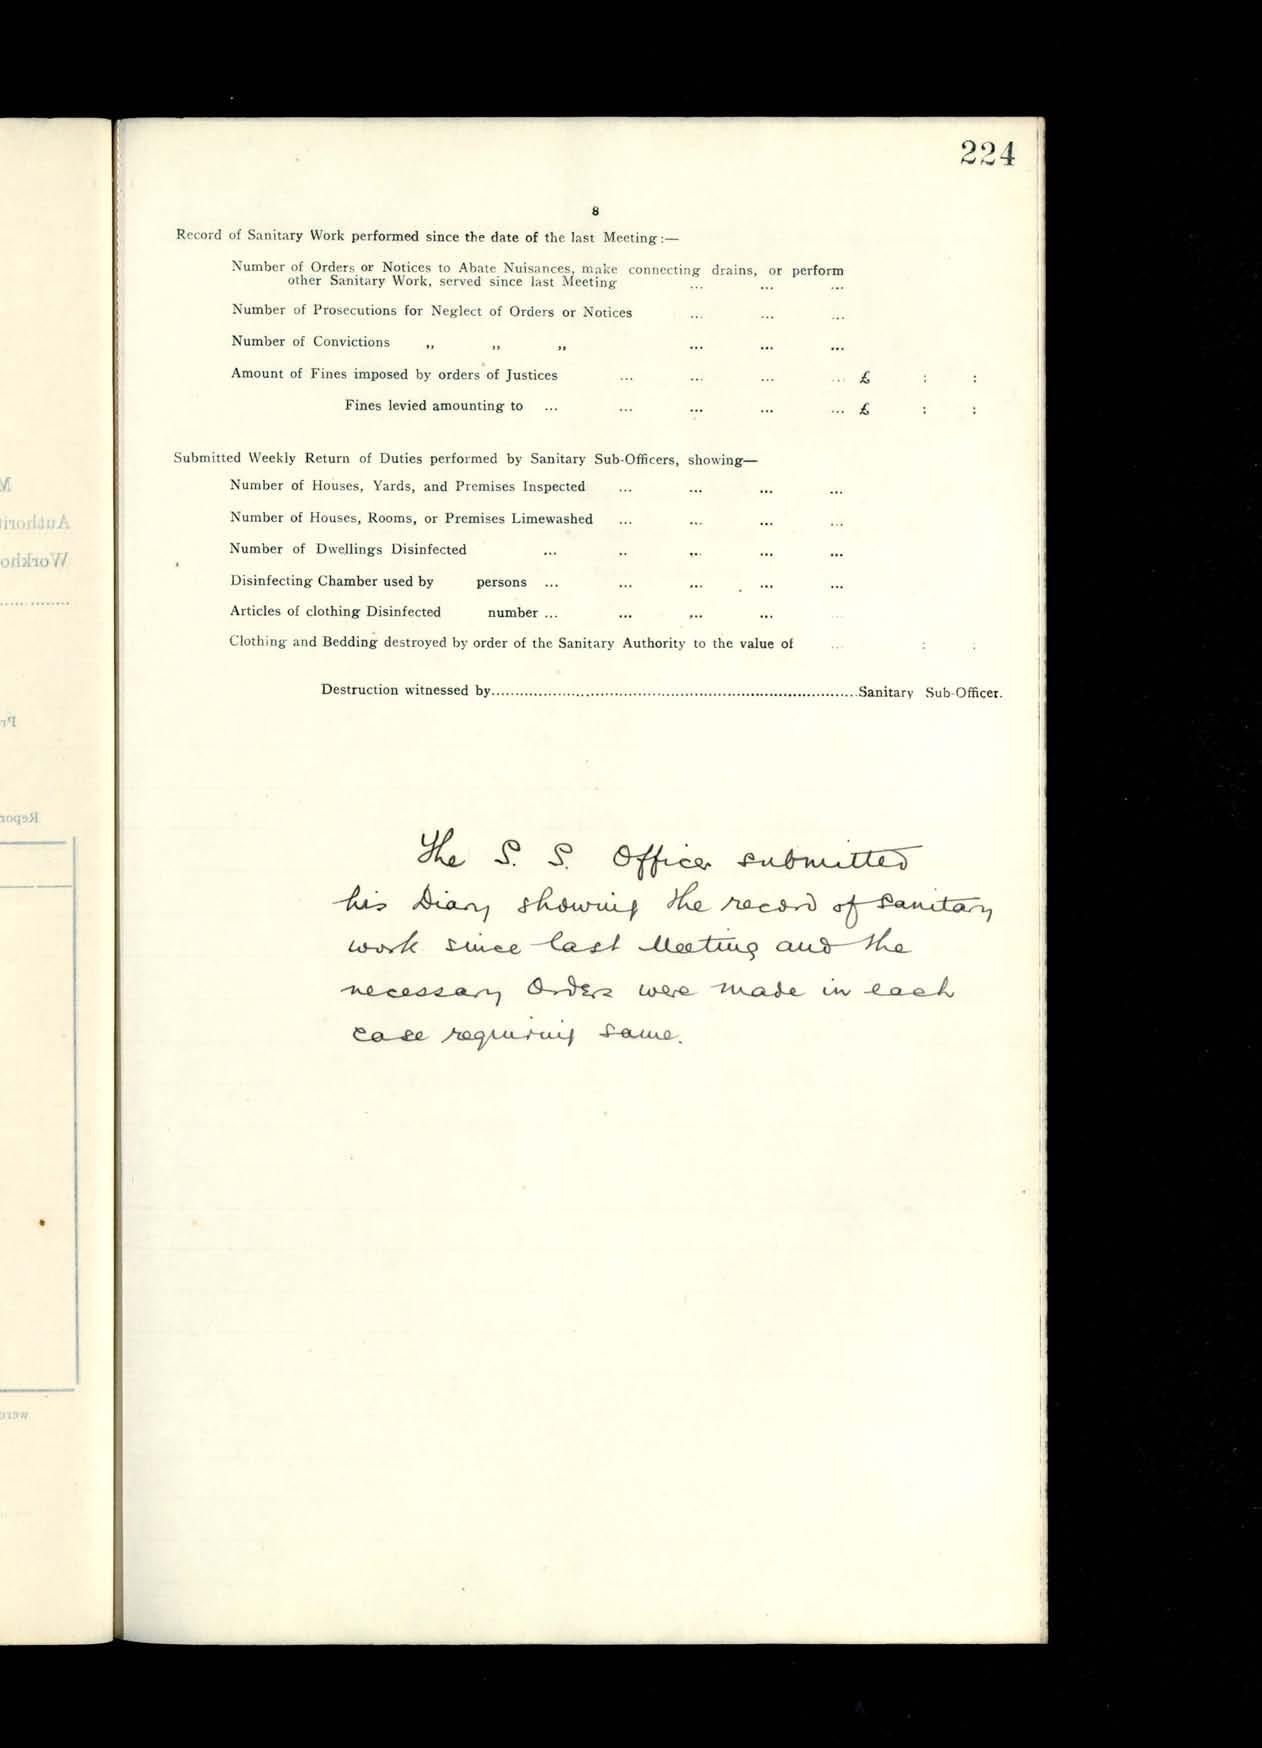 224
8
Record of Sanitary Work performed since the date of the last Meeting:—
Number of Orders or Notices to Abate Nuisances, make connecting drains, or perform
other Sanitary Work, served since last Meeting ... ... ...
Number of Prosecutions for Neglect of Orders or Notices ... ... ...
Number of Convictions „ „ „ ... ... ...
Amount of Fines imposed by orders of Justices ... ... ... ... £ : :
Fines levied amounting to ... ... ... ... ... £ : :
Submitted Weekly Return of Duties performed by Sanitary Sub-Officers, showing—
Number of Houses, Yards, and Premises Inspected ... ... ... ...
Number of Houses, Rooms, or Premises Limewashed ... ... ... ...
Number of Dwellings Disinfected ... .. ... ... ...
Disinfecting Chamber used by persons ... ... ... ... ...
Articles of clothing Disinfected number ... ... ... ... ...
Clothing and Bedding destroyed by order of the Sanitary Authority to the value of ... : :
Destruction witnessed by..............................................................................Sanitary Sub-Officer.
The S. S. Officer submitted
his Diary showing the record of Sanitary
work since last Meeting and the
necessary Orders were made in each
case requiring same.
M
Authorit
Workho
Pr
Repor
were